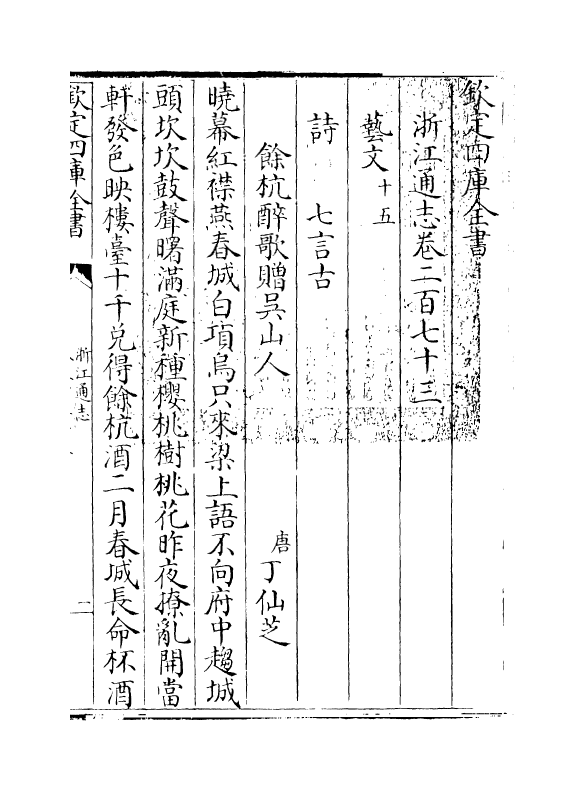 欽定四庫全書
浙江通志卷二百七十三
藝文十五
詩 七言古
餘杭醉歌贈吳山人 唐丁仙芝
曉幕紅襟燕春城白項烏只來梁上語不向府中趨城
頭坎坎鼓聲曙滿庭新種櫻桃樹桃花昨夜撩亂開當
軒發色映樓臺十千兌得餘杭酒二月春城長命杯酒
欽定四庫全書
浙江通志